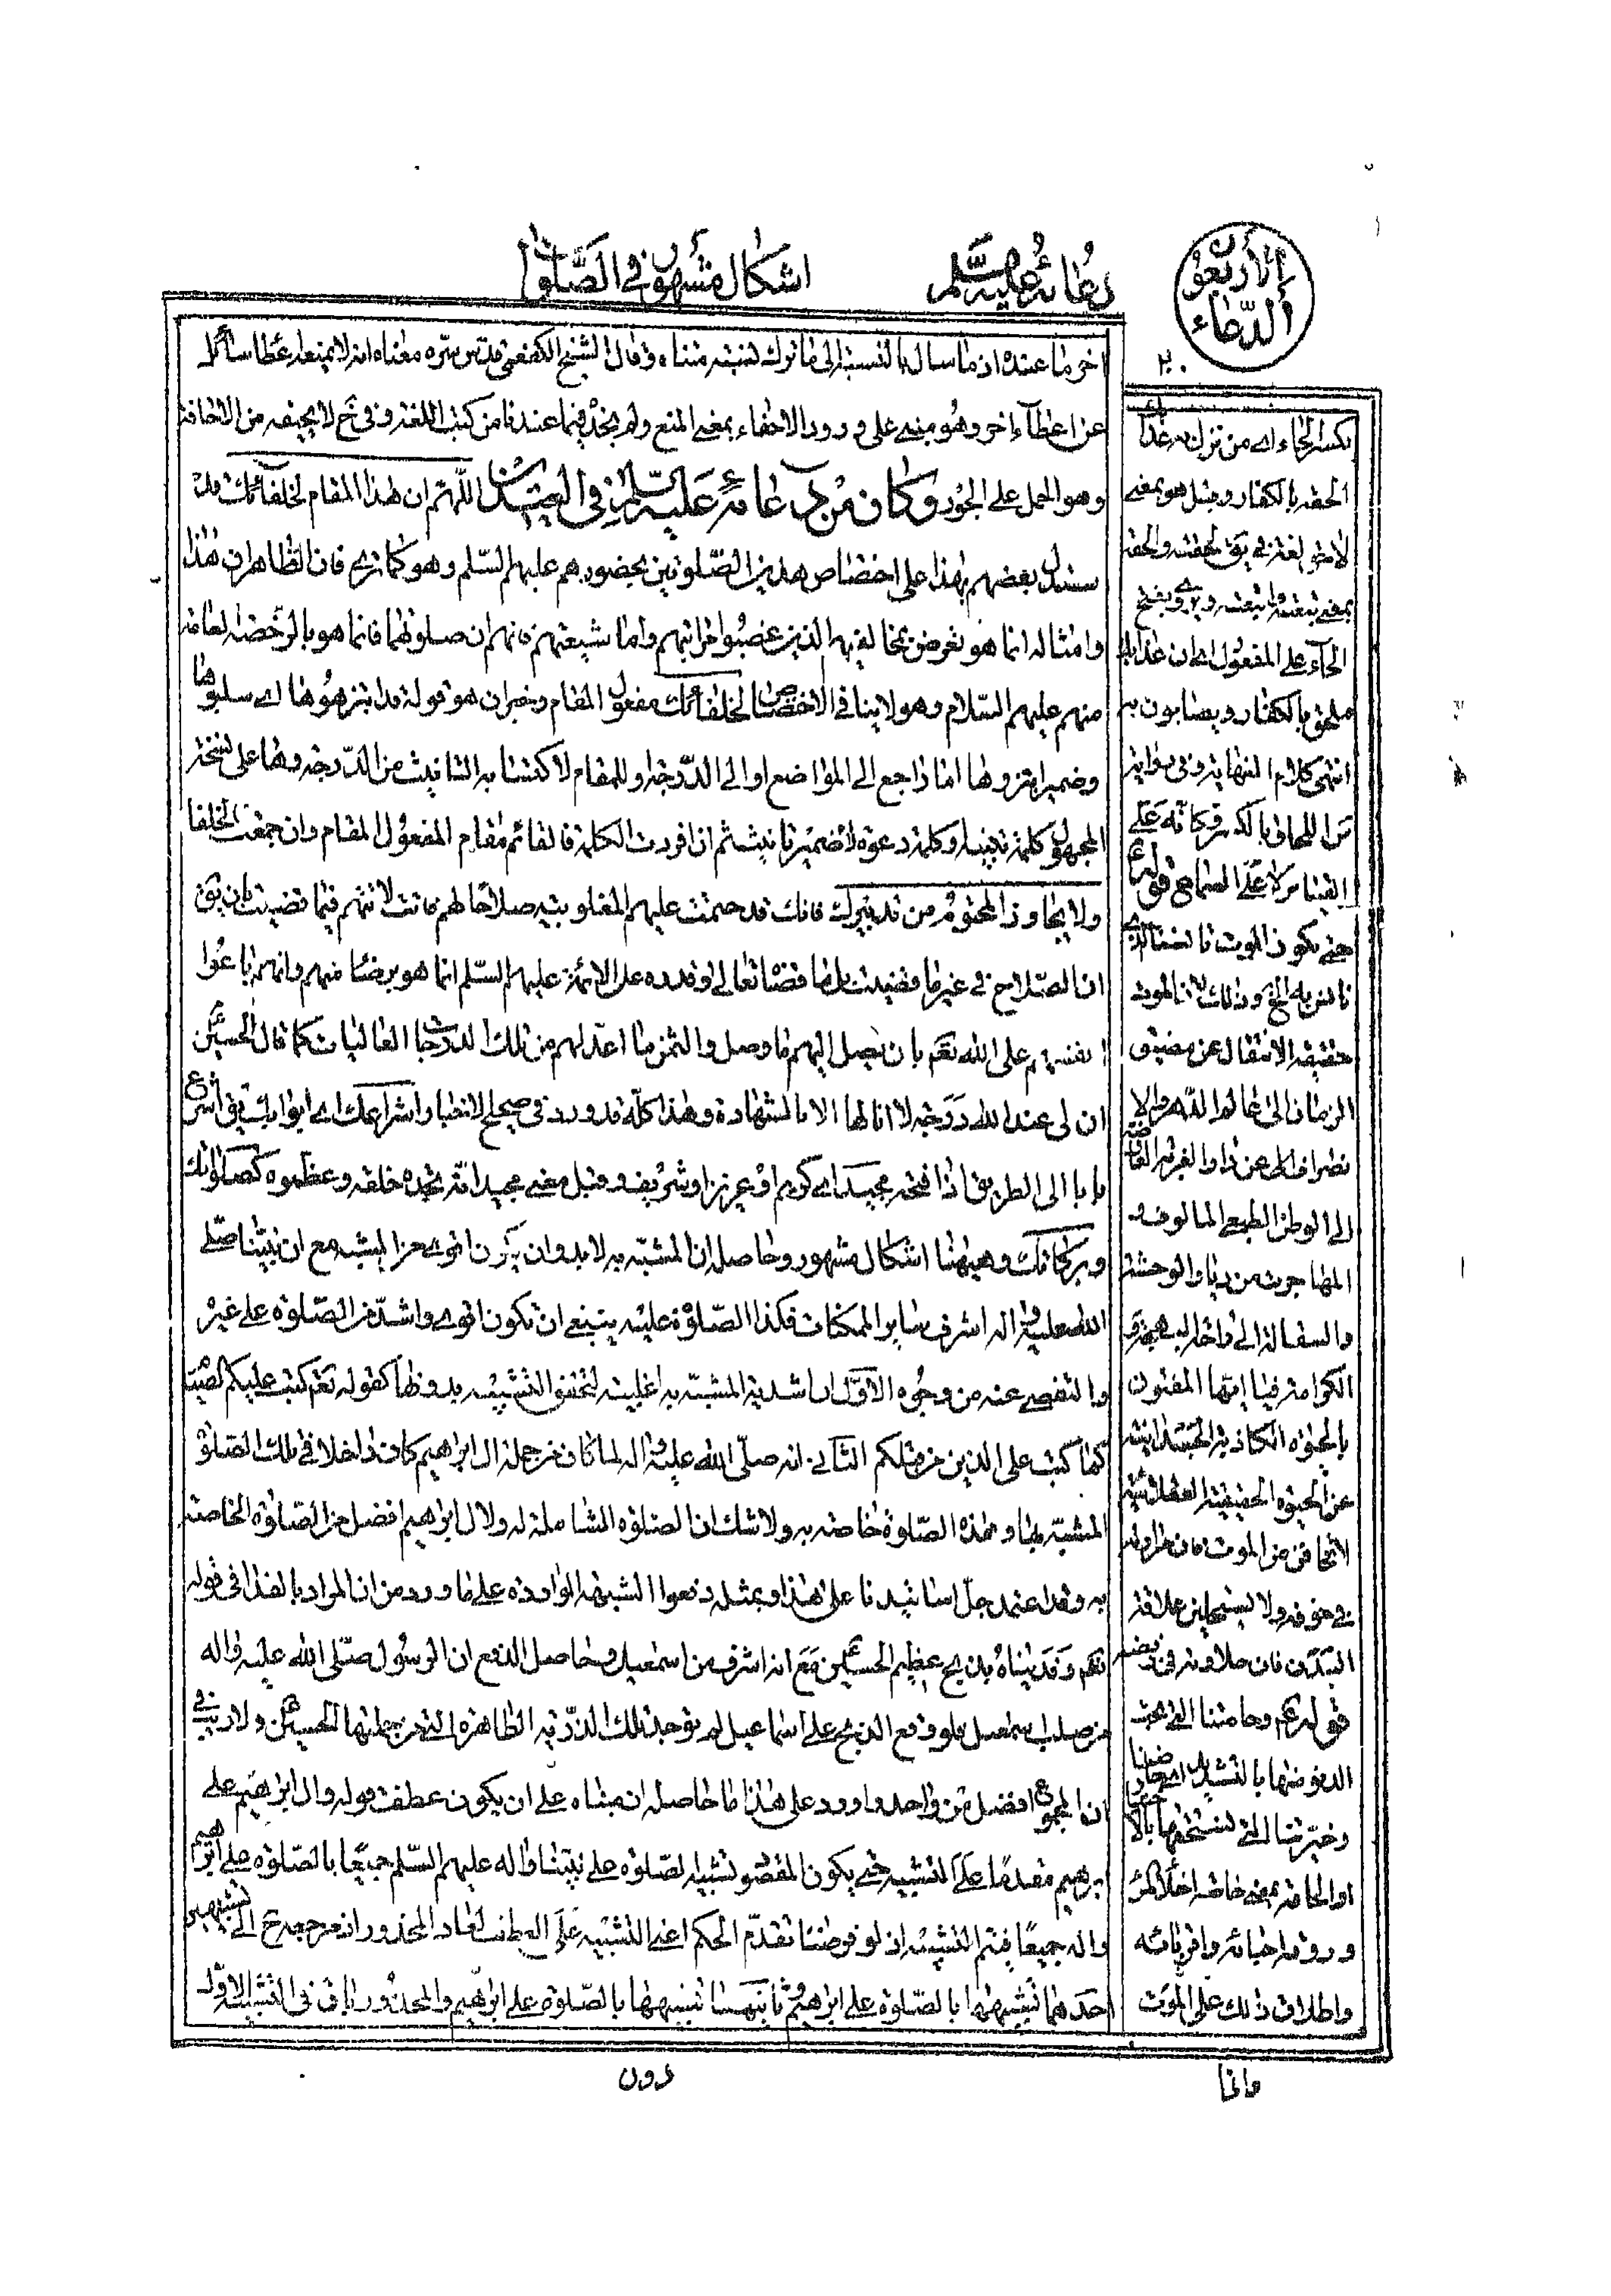 اشكال مشهور في الصلوات
دعائه عليه السلم
الدعاء الأربعون
اخر ما عنده اذ ما سال بالنسبة الى ما ترك لنسبته متناه وقال الشيخ الكفعمي قدس سره معناه انه لا يمنعه عطا سائل
عن اعطآء اخر وهو مبني على ورود الاحفاء بمعنى المنع ولم نجد فيما عندنا من كتب اللغة وفي نخ لا يحيفه من الاحافة
وهو الحمل على الجور وكان من دعائه عليه السلم في اللهم ان هذا المقام لخلفائك قد
ستدل بعضهم بهذا على اختصاص هذين الصلوتين بحضورهم عليهم السلم وهو كما ترى فان الظاهر ان هذا
وامثاله انما هو تعريض بمخالفيهم الذين غصبوا مراتبهم واما شيعتهم فانهم ان صلوهما فانما هو بالرخصة العامة
منهم عليهم السلام وهو لا ينافي الاختصاص لخلفائك مفعول المقام وخبر ان هو قوله قد ابتزوها اي سلبوها
وضمير ابتزوها اما راجع الى المواضع او الى الدرجة او للمقام لاكتسابه التانيث من الدرجة وهما على نسخة
المجهول كلمة تنبيه وكلمة دعوة لا ضمير تانيث ثم ان افردت الكلمة فالقائم مقام المفعول المقام وان جمعت الخلفا
ولا يجاوز المحتوم من تدبيرك فانك قد حتمت عليهم المغلوبية صلاحا لهم فانت لا تتهم فيما قضيت بان يق
ان الصلاح في غير ما قضيت بل ما قضاه تعالى وقدره على الائمة عليهم السلم انما هو برضا منهم وانهم باعوا
انفسهم على الله تعم بان يصل اليهم ما وصل والثمن ما اعد لهم من تلك الدرجات العاليات كما قال الحسين ع
ان لي عند الله درجة لا انالها الا بالشهادة وهذا كله قد ورد في صحيح الاخبار واشراعك اي ابوابك يق اشرع
بابا الى الطريق اذا فتحه مجيد اي كريم او عزيز او شريف وقيل معنى مجيد انه مجده خلقه وعظموه كصلواتك
وبركاتك وهيهنا اشكال مشهور وحاصله ان المشبه به لا بد وان يكون اقوى من المشبه مع ان نبينا صلى
الله عليه واله اشرف ساير الممكنات فكذا الصلوة عليه ينبغي ان تكون اقوى واشد من الصلوة على غيره
والتفصي عنه من وجوه الاول ان اشدية المشبه به اغلبية لتحقق التشبيه بدونها كقوله تعم كتب عليكم الصيام
كما كتب على الذين من قبلكم الثاني انه صلى الله عليه واله لما كان من جملة ال ابراهيم كان داخلا في تلك الصلوة
المشبه بها وهذه الصلوة خاصة به ولا شك ان الصلوة الشاملة له ولال ابراهيم افضل من الصلوة الخاصة
به وقد اعتمد جل اساتيدنا على هذا وبمثله دفعوا الشبهة الواردة على ما ورد من ان المراد بالفدا في قوله
تعم وفديناه بذبح عظيم الحسين ع مع انه اشرف من اسمعيل وحاصل الدفع ان الرسول صلى الله عليه واله
من صلب اسمعيل فلو وقع الذبح على اسماعيل لم توجد تلك الذرية الطاهرة التي من جملتها الحسين ع ولا ريب في
ان المجموع افضل من واحد واورد على هذا ما حاصله ان مبناه على ان يكون عطف قوله وال ابراهيم على
ابرهيم مقدما على التشبيه حتى يكون المقصود تشبيه الصلوة على نبينا واله عليهم السلم جميعا بالصلوة على ابرهيم
واله جميعا فيتم التشبيه اذ لو فرضنا تقدم الحكم اعني التشبيه على العطف لعاد المحذور اذ مرجعه ح الى تشبيهين
احدهما تشبيهها بالصلوة على ابراهيم وثانيهما تشبيهها بالصلوة على ال ابرهيم والمحذور باق في التشبيه الاول
دون
بكسر الحاء اي من نزل به عذابك
الحقه بالكفار وقيل هو بمعنى
لاحق لغة في يق لحقته والحقته
بمعنى تبعته واتبعته ويروى بفتح
الحآء على المفعول اي ان عذابك
ملحق بالكفار ويصابون به
انتهى كلام النهاية وفي رواية
حتى يكون الموت مانسنا الذي
نانس به الخ وذلك لان الموت
حقيقة الانتقال عن مضيق
الزمان الى عالم الدهر والا
نصراف عن دار الغربة
الى الوطن الطبيعي المالوف
المهاجرت من ديار الوحشة
الكرامة فيا ايها المفتون
بالحيوة الكاذبة الحسدانية
عن الحيوة الحقيقية العقلانية
لا تخافن من الموت فان مرارته
في خوفه ولا
البدن فان حلاوته في رفضه
قوله ع وحامتنا التي نحب
الدنو منها بالتشديد اي
او الحامة بمعنى خاصة اهل الرجل
وروده احبائه واقربائه
واطلاق ذلك على الموت
واما